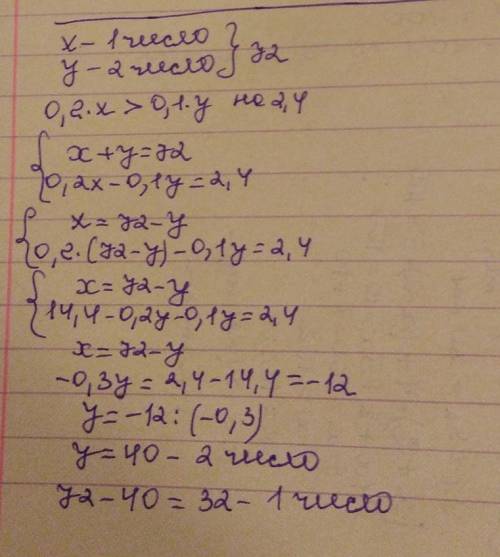 x - 1 число
y - 2 число } 72
0,2·x > 0,1·y на 2,4
{ x+y=72
0,2x-0,1y=2,4
{ x=72-y
0,2·(72-y)-0,1y=2,4
{ x=72-y
14,4-0,2y-0,1y=2,4
x=72-y
-0,3y=2,4-14,4=-12
y=-12:(-0,3)
y=40 - 2 число
72-40=32 - 1 число